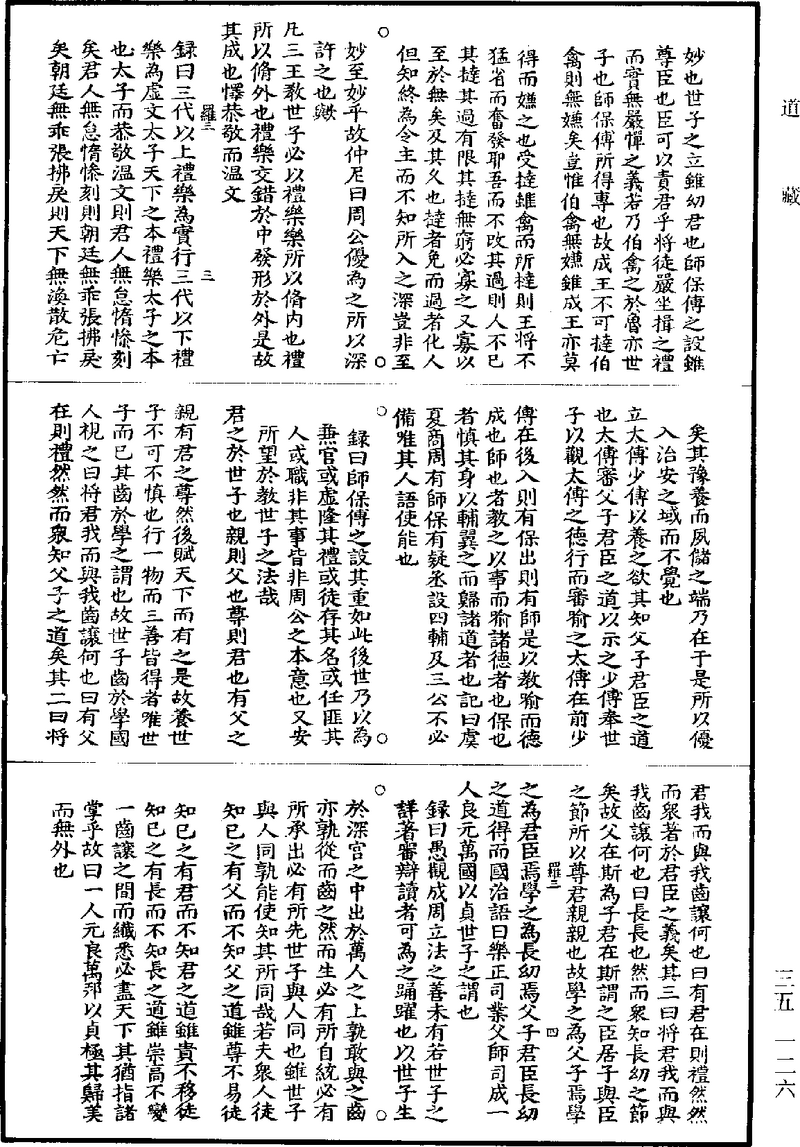 道藏
妙也世子之立雖幼君也師保傅之設雖
尊臣也臣可以責君乎將徒嚴坐揖之禮
而實無嚴憚之義若乃伯禽之於魯亦世
子也師保傅所得專也故成王不可撻伯
禽則無嫌矣豈惟伯禽無嫌雖成王亦莫
得而嫌之也受撻雖禽而所撻則王將不
猛省而奮發耶吾而不改其過則人不已
其撻其過有限其撻無窮必寡之又寡以
至於無矣及其久也撻者免而過者化人
但知終為令主而不知所入之深豈非至
妙至妙乎故仲尼曰周公優為之所以深
許之也歟
凡三王教世子必以禮樂樂所以脩内也禮
所以脩外也禮樂交錯於中發形於外是故
其成也懌恭敬而溫文
羅三
三
錄曰三代以上禮樂為實行三代以下禮
樂為虛文太子天下之本禮樂太子之本
也太子而恭敬溫文則君人無怠惰慘刻
矣君人無怠惰慘刻則朝廷無乖張拂戾
矣朝廷無乖張拂戾則天下無渙散危亡
矣其豫養而夙儲之端乃在于是所以優
入治安之域而不覺也
立太傅少傅以養之欲其知父子君臣之道
也太傅審父子君臣之道以示之少傅奉世
子以觀太傅之德行而審喻之太傅在前少
傅在後入則有保出則有師是以教喻而德
成也師也者教之以事而喻諸德者也保也
者慎其身以輔翼之而歸諸道者也記曰虞
夏商周有師保有疑丞設四輔及三公不必
備唯其人語使能也
錄曰師保傅之設其重如此後世乃以為
兼官或虛隆其禮或徒存其名或任匪其
人或職非其事皆非周公之本意也又安
所望於教世子之法哉
君之於世子也親則父也尊則君也有父之
親有君之尊然後賦天下而有之是故養世
子不可不慎也行一物而三善皆得者唯世
子而已其齒於學之謂也故世子齒於學國
人視之曰將君我而與我齒讓何也曰有父
在則禮然然而衆知父子之道矣其二曰將
君我而與我齒讓何也曰有君在則禮然然
而衆著於君臣之義矣其三曰將君我而與
我齒讓何也曰長長也然而衆知長幼之節
矣故父在斯為子君在斯謂之臣居子與臣
之節所以尊君親親也故學之為父子焉學
羅三
四
之為君臣焉學之為長幼焉父子君臣長幼
之道得而國治語曰樂正司業父師司成一
人良元萬國以貞世子之謂也
錄曰愚觀成周立法之善未有若世子之
詳著審辯讀者可為之踊躍也以世子生
於深宮之中出於萬人之上孰敢與之齒
亦孰從而齒之然而生必有所自統必有
所承出必有所先世子與人同也雖世子
與人同孰能使知其所同哉若夫衆人徒
知己之有父而不知父之道雖尊不易徒
知己之有君而不知君之道雖貴不移徒
知己之有長而不知長之道雖崇高不變
一齒讓之間而纖悉必盡天下其猶指諸
掌乎故曰一人元良萬邦以貞極其歸美
而無外也
三五 一二六